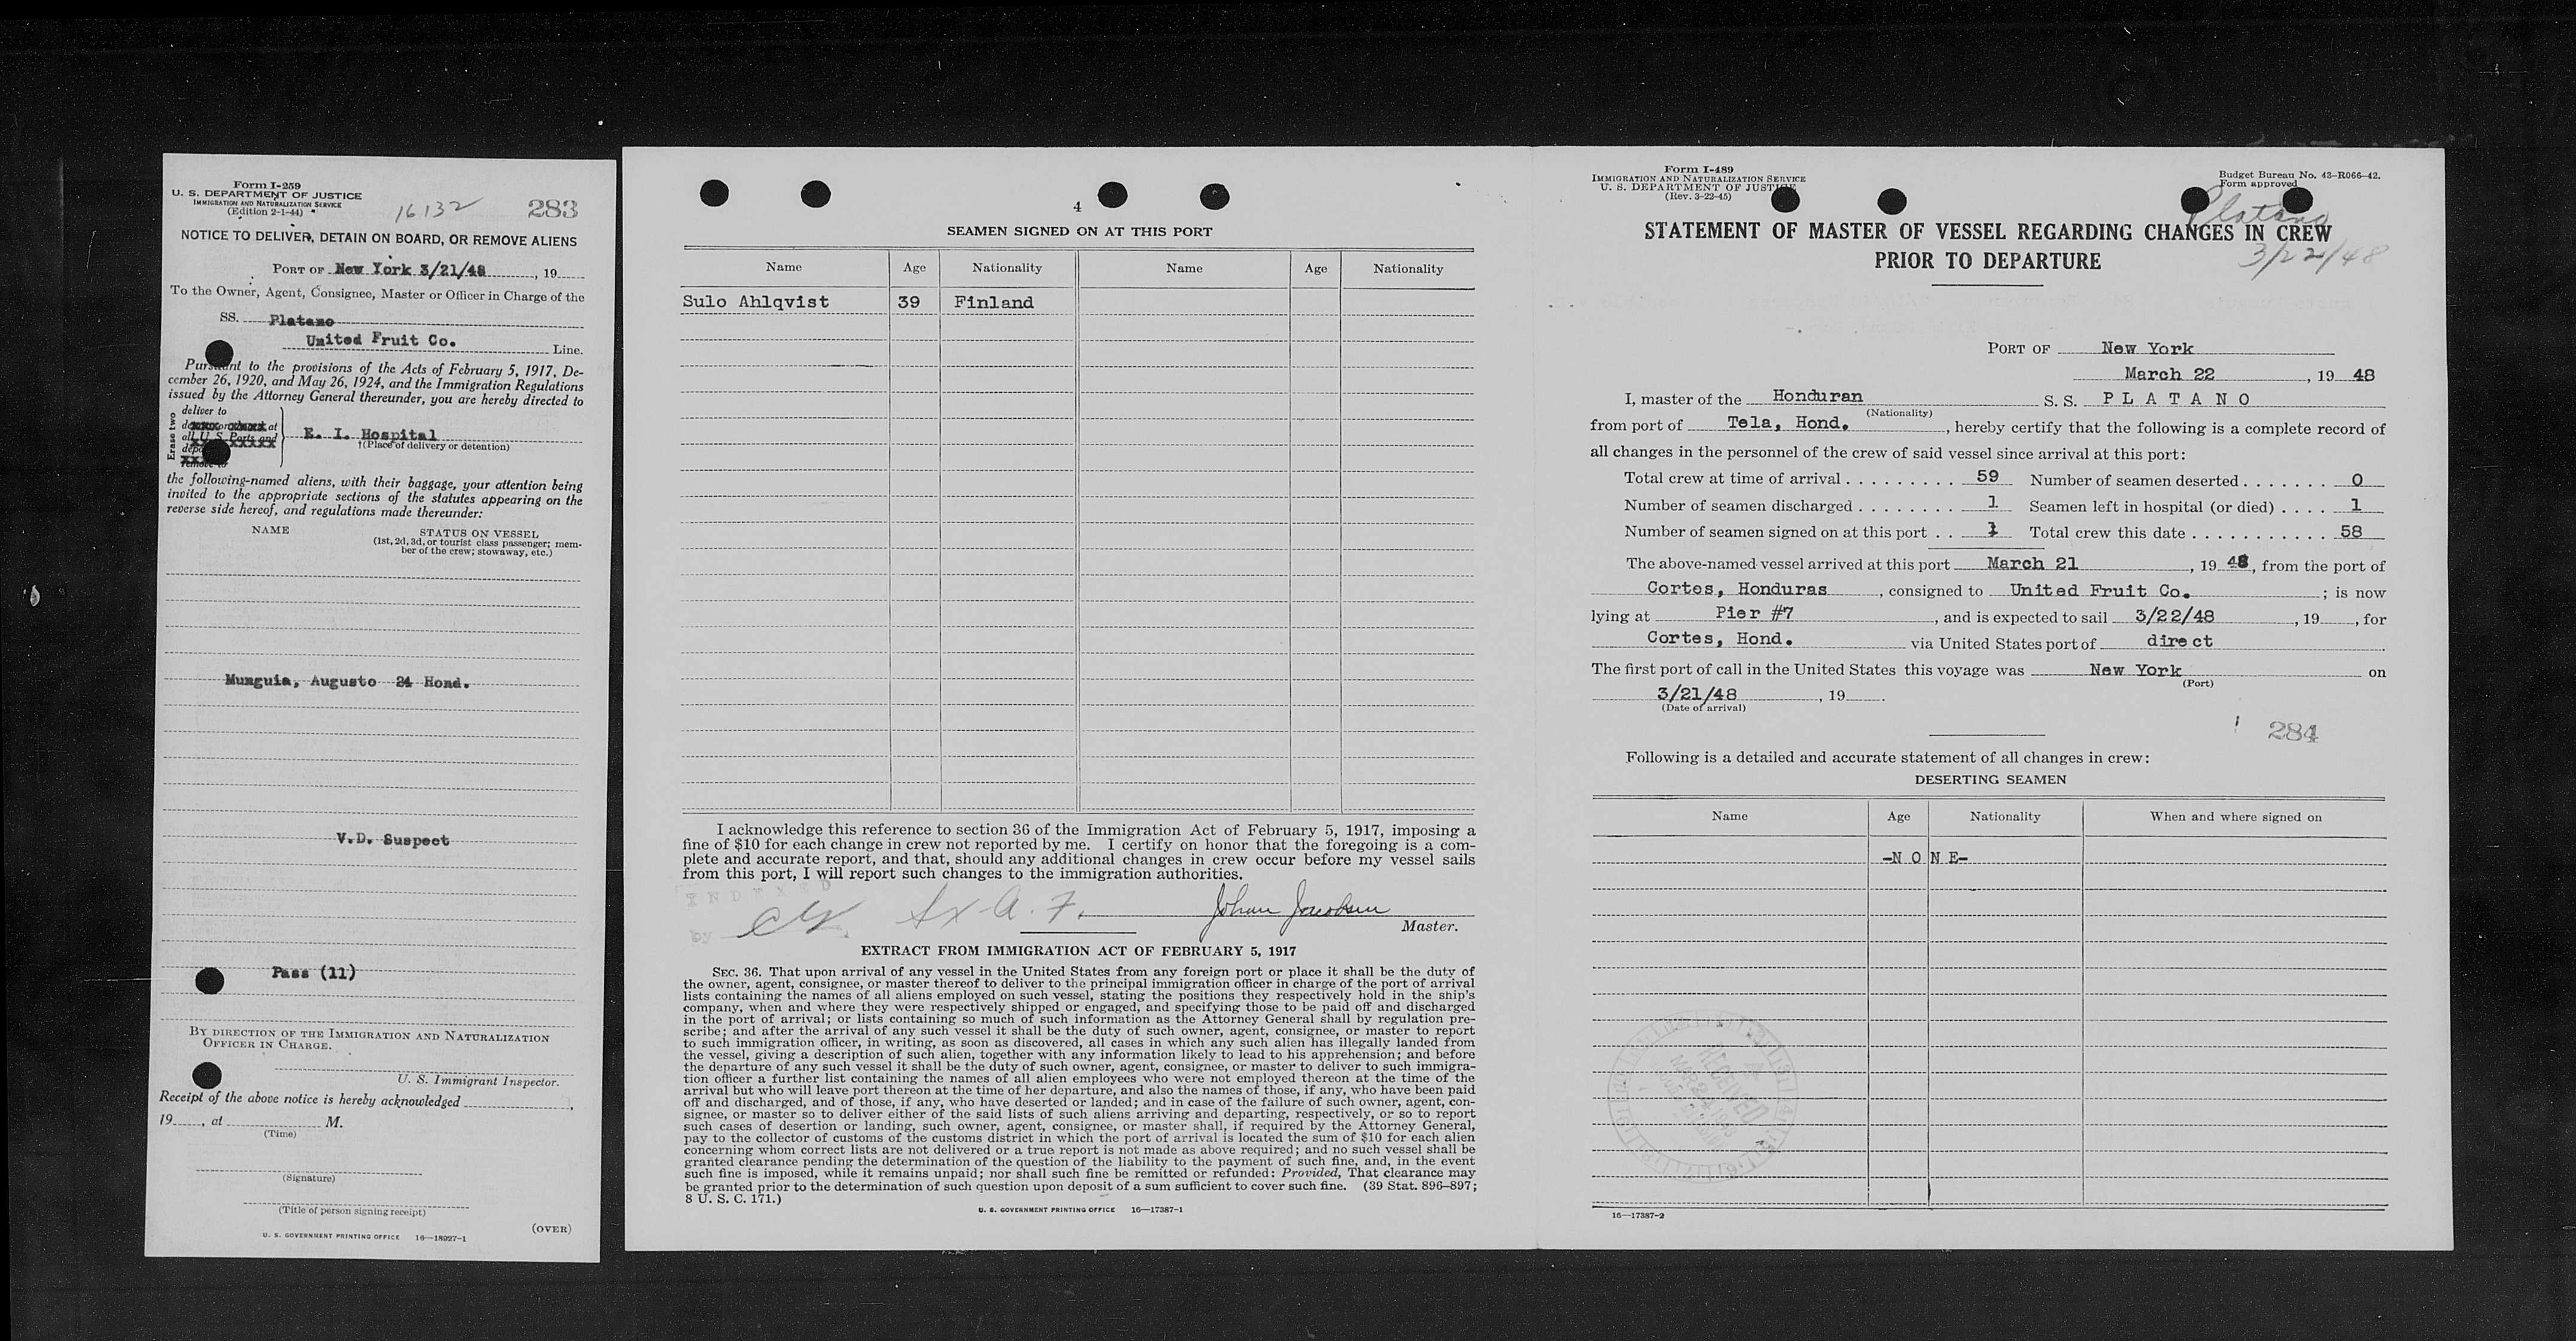 Form I-259
U. S. DEPARTMENT OF JUSTICE
IMMIGRATION AND NATURALIZATION SERVICE
(Edition 2-1-44)
16132
283
NOTICE TO DELIVER, DETAIN ON BOARD, OR REMOVE ALIENS
PORT OF New York 3/21/48, 19
To the Owner, Agent, Consignee, Master or Officer in Charge of the
SS. Platano
United Fruit Co. Line.
Pursuant to the provisions of the Acts of February 5, 1917, De-
cember 26, 1920, and May 26, 1924, and the Immigration Regulations
issued by the Attorney General thereunder, you are hereby directed to
Erase two
deliver to
at
all U. S. Ports and
remove to
E. I. Hospital
†(Place of delivery or detention)
the following-named aliens, with their baggage, your attention being
invited to the appropriate sections of the statutes appearing on the
reverse side hereof, and regulations made thereunder:
NAME STATUS ON VESSEL
(1st, 2d, 3d, or tourist class passenger; mem-
ber of the crew; stowaway, etc.)
Munguia, Augusto 24 Hond.
V.D. Suspect
Pass (11)
BY DIRECTION OF THE IMMIGRATION AND NATURALIZATION
OFFICER IN CHARGE.
U. S. Immigrant Inspector.
Receipt of the above notice is hereby acknowledged
19, at M.
(Time)
(Signature)
(Title of person signing receipt)
(OVER)
U. S. GOVERNMENT PRINTING OFFICE 16—18027-1
4
SEAMEN SIGNED ON AT THIS PORT
Name Age Nationality Name Age Nationality
Sulo Ahlqvist 39 Finland
I acknowledge this reference to section 36 of the Immigration Act of February 5, 1917, imposing a
fine of $10 for each change in crew not reported by me. I certify on honor that the foregoing is a com-
plete and accurate report, and that, should any additional changes in crew occur before my vessel sails
from this port, I will report such changes to the immigration authorities.
INDEXED
by
Johan Jacobsen
Master.
EXTRACT FROM IMMIGRATION ACT OF FEBRUARY 5, 1917
SEC. 36. That upon arrival of any vessel in the United States from any foreign port or place it shall be the duty of
the owner, agent, consignee, or master thereof to deliver to the principal immigration officer in charge of the port of arrival
lists containing the names of all aliens employed on such vessel, stating the positions they respectively hold in the ship's
company, when and where they were respectively shipped or engaged, and specifying those to be paid off and discharged
in the port of arrival; or lists containing so much of such information as the Attorney General shall by regulation pre-
scribe; and after the arrival of any such vessel it shall be the duty of such owner, agent, consignee, or master to report
to such immigration officer, in writing, as soon as discovered, all cases in which any such alien has illegally landed from
the vessel, giving a description of such alien, together with any information likely to lead to his apprehension; and before
the departure of any such vessel it shall be the duty of such owner, agent, consignee, or master to deliver to such immigra-
tion officer a further list containing the names of all alien employees who were not employed thereon at the time of the
arrival but who will leave port thereon at the time of her departure, and also the names of those, if any, who have been paid
off and discharged, and of those, if any, who have deserted or landed; and in case of the failure of such owner, agent, con-
signee, or master so to deliver either of the said lists of such aliens arriving and departing, respectively, or so to report
such cases of desertion or landing, such owner, agent, consignee, or master shall, if required by the Attorney General,
pay to the collector of customs of the customs district in which the port of arrival is located the sum of $10 for each alien
concerning whom correct lists are not delivered or a true report is not made as above required; and no such vessel shall be
granted clearance pending the determination of the question of the liability to the payment of such fine, and, in the event
such fine is imposed, while it remains unpaid; nor shall such fine be remitted or refunded: Provided, That clearance may
be granted prior to the determination of such question upon deposit of a sum sufficient to cover such fine. (39 Stat. 896–897;
8 U. S. C. 171.)
U. S. GOVERNMENT PRINTING OFFICE 16—17387-1
Form I-489
IMMIGRATION AND NATURALIZATION SERVICE
U. S. DEPARTMENT OF JUSTICE
(Rev. 3-22-45)
Budget Bureau No. 43-R066-42.
Form approved
Platano
3/22/48
STATEMENT OF MASTER OF VESSEL REGARDING CHANGES IN CREW
PRIOR TO DEPARTURE
PORT OF New York
March 22, 19 48
I, master of the Honduran S. S. PLATANO
(Nationality)
from port of Tela, Hond., hereby certify that the following is a complete record of
all changes in the personnel of the crew of said vessel since arrival at this port:
Total crew at time of arrival 59 Number of seamen deserted 0
Number of seamen discharged 1 Seamen left in hospital (or died) 1
Number of seamen signed on at this port 1 Total crew this date 58
The above-named vessel arrived at this port March 21, 19 48, from the port of
Cortes, Honduras, consigned to United Fruit Co.; is now
lying at Pier #7, and is expected to sail 3/22/48, 19, for
Cortes, Hond. via United States port of direct
The first port of call in the United States this voyage was New York on
(Port)
3/21/48, 19.
(Date of arrival)
284
Following is a detailed and accurate statement of all changes in crew:
DESERTING SEAMEN
Name Age Nationality When and where signed on
-NONE-
RECEIVED
MAR 24 1948
16—17387-2